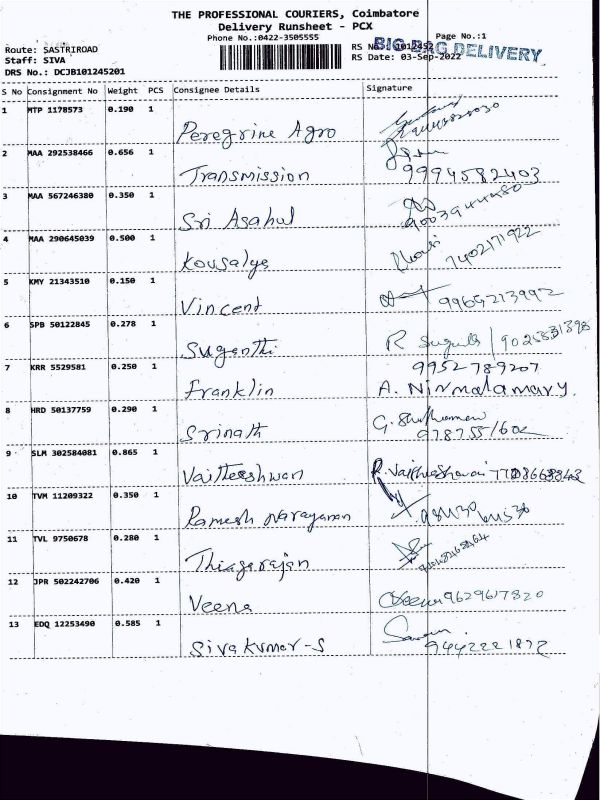 THE PROFESSIONAL COURIERS, Coimbatore
Delivery Runsheet - PCX
Phone No.:0422-3505555 Page No.:1
Route: SASTRIROAD RS No 1012452 BIG BAG DELIVERY
Staff: SIVA RS Date: 03-Sep-2022
DRS No.: DCJB101245201
S No Consignment No Weight PCS Consignee Details Signature
1 MTP 1178573 0.190 1
Peregrine Agro
2 MAA 292538466 0.656 1
Transmission 9994582403
3 MAA 567246380 0.350 1
Sri Asahul
4 MAA 290645039 0.500 1
Kousalya 7402171922
5 KMY 21343510 0.150 1
Vincent 9965213992
6 SPB 50122845 0.278 1
Suganthi R
7 KRR 5529581 0.250 1 9952789207
Franklin A. Nirmalamary.
8 HRD 50137759 0.290 1
Srinath G.
9 SLM 302584081 0.865 1
Vaitheeshwan
10 TVM 11209322 0.350 1
Ramesh Narayanan
11 TVL 9750678 0.280 1
Thiagarajan
12 JPR 502242706 0.420 1
Veena Veena 9629617820
13 EDQ 12253490 0.585 1
Sivakumar-S 9442221872